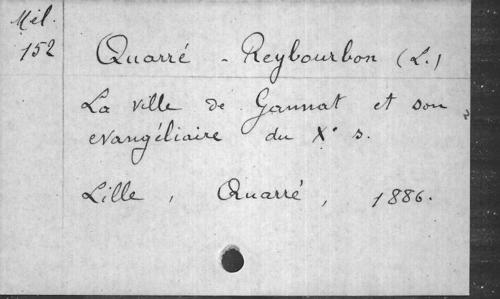 Mél.
152
Quarré - Reybourbon (L.)
La ville de Gannat et son
evangéliaire du X° s.
Lille, Quarré, 1886.